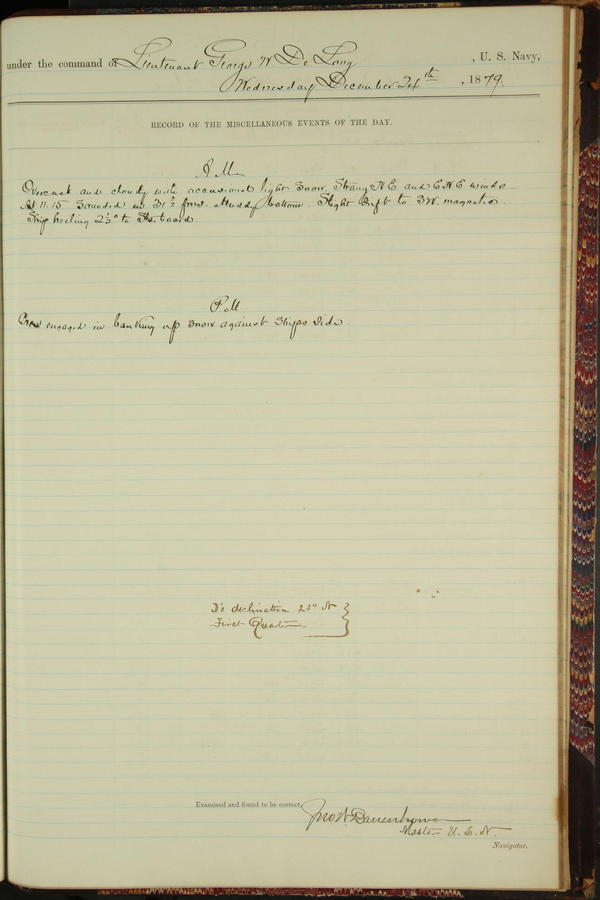 under the command of Lieutenant George W De Long, U. S. Navy,
Wednesday December 24th, 1879.
RECORD OF THE MISCELLANEOUS EVENTS OF THE DAY.
A M
Overcast and cloudy with occasional light snow. Strong NE and ENE winds
At 11.15 sounded in 31½ fms. Muddy bottom. Slight drift to SW. magnetic.
Ship heeling 2½° to Starboard.
P M
Crew engaged in banking up snow against Ships side
D's declination 23° N
First Quarter
Examined and found to be correct,
Jno W. Danenhower
Master U. S. N.
Navigator.